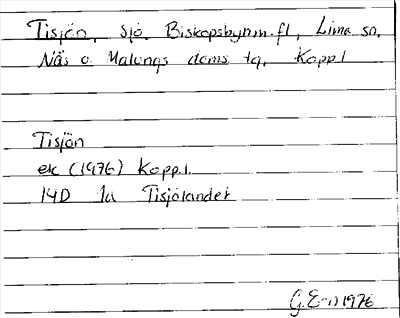 Tisjön, sjö. Biskopsbyn m.fl., Lima sn,
Näs o. Malungs doms. tg, Kopp.l
Tisjön
ek (1976) Kopp.l.
14D 1a Tisjölandet
G.E-n 1976